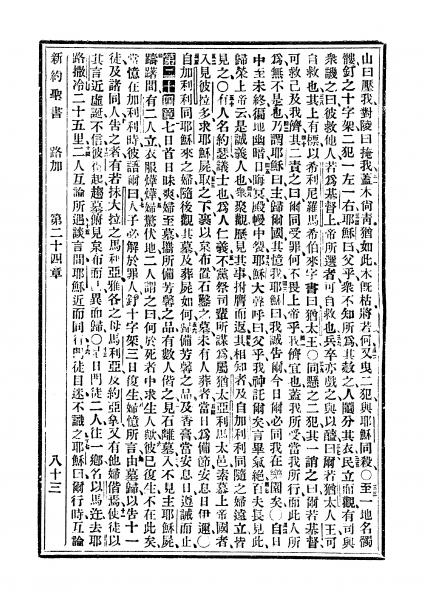 山曰壓我對陵曰掩我蓋木尚靑猶如此木旣枯將若何又曳二犯與耶穌同殺〇至一地名髑
髏釘之十字架二犯一左一右耶穌曰父乎衆不知所爲其赦之人鬮分其衣民立而觀有司與
衆譏之曰彼救他人若爲基督上帝所選者可自救也兵卒亦戲之與以醯曰爾若猶太人王可
自救也其上有標以希利尼羅馬希伯來字書曰猶太王〇同懸之二犯其一誚之曰爾若基督
可救己及我儕其二責之曰爾同受罪何不畏上帝乎我儕宜也蓋我所受當我所行而此人所
爲無不是也乃謂耶穌曰主歸爾國其憶我耶穌曰我誠告爾今日爾必同我在樂園矣〇自日
中至未終徧地幽暗日晦冥殿幔中裂耶穌大聲呼曰父乎我神託爾矣言畢氣絕百夫長見此
歸榮上帝云是誠義人也衆聚觀歷見其事拊膺而返其相知者及自加利利同隨之婦遠立皆
見之〇有人名約瑟議士也爲人仁義不黨祭司輩所謀爲屬猶太亞利馬太邑素慕上帝國者
入見彼拉多求耶穌屍取之下裹以枲布置石鑿之墓未有人葬者當日爲備節安息日伊邇〇
自加利利同耶穌來之婦隨後觀其墓及葬屍如何歸備芳馨之品及香膏當安息日遵誡而止
第二十四章七日首日昧爽婦至墓攜所備芳馨之品有數人偕之見石離墓入不見主耶穌屍
躊躇間有二人立衣服煒煒婦驚伏地二人謂之曰何於死者中求生人歟彼已復生不在此矣
當憶在加利利時彼語爾曰人子必解於罪人釘十字架三日復生婦憶所言由墓歸以告十一
徒及諸同人告之者有若抹大拉之馬利亞雅各之母馬利亞及約亞拿又有他婦偕焉使徒以
其言近虛誕不信彼得起趨墓俯見枲布而已異而歸〇是日門徒二人往一鄉名以馬迕去耶
路撒冷二十五里二人互論所遇談言間耶穌近而同行門徒目迷不識之耶穌曰爾行時互論
新約聖書 路加 第二十四章 八十三